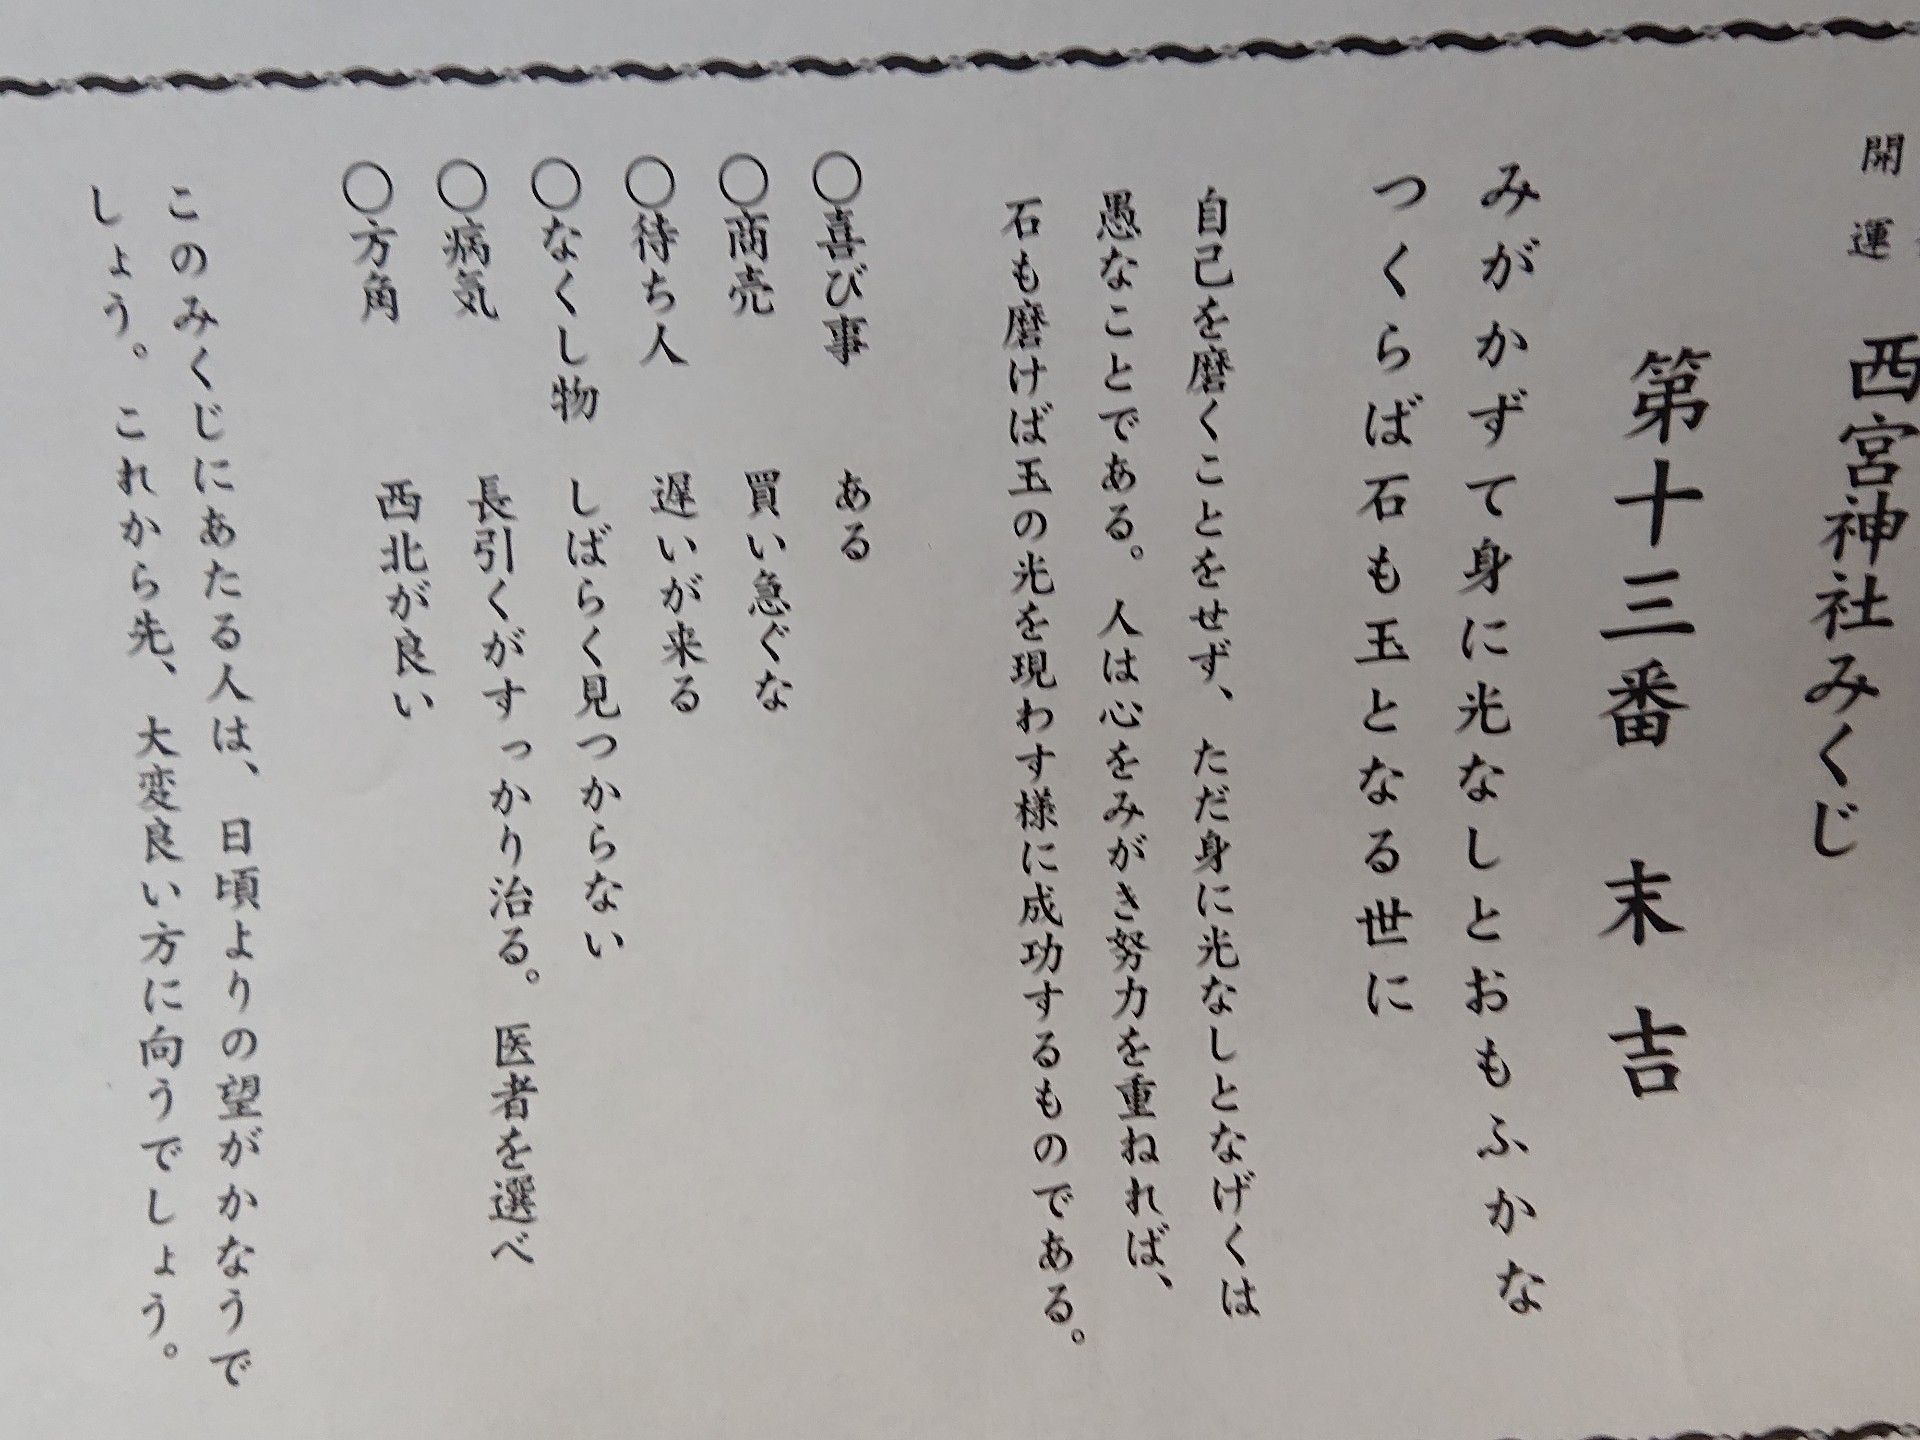 開運 西宮神社みくじ
第十三番 末吉
みがかずて身に光なしとおもふかな
つくらば石も玉となる世に
自己を磨くことをせず、ただ身に光なしとなげくは
愚なことである。人は心をみがき努力を重ねれば、
石も磨けば玉の光を現わす様に成功するものである。
○喜び事 ある
○商売 買い急ぐな
○待ち人 遅いが来る
○なくし物 しばらく見つからない
○病気 長引くがすっかり治る。医者を選べ
○方角 西北が良い
このみくじにあたる人は、日頃よりの望がかなうで
しょう。これから先、大変良い方に向うでしょう。